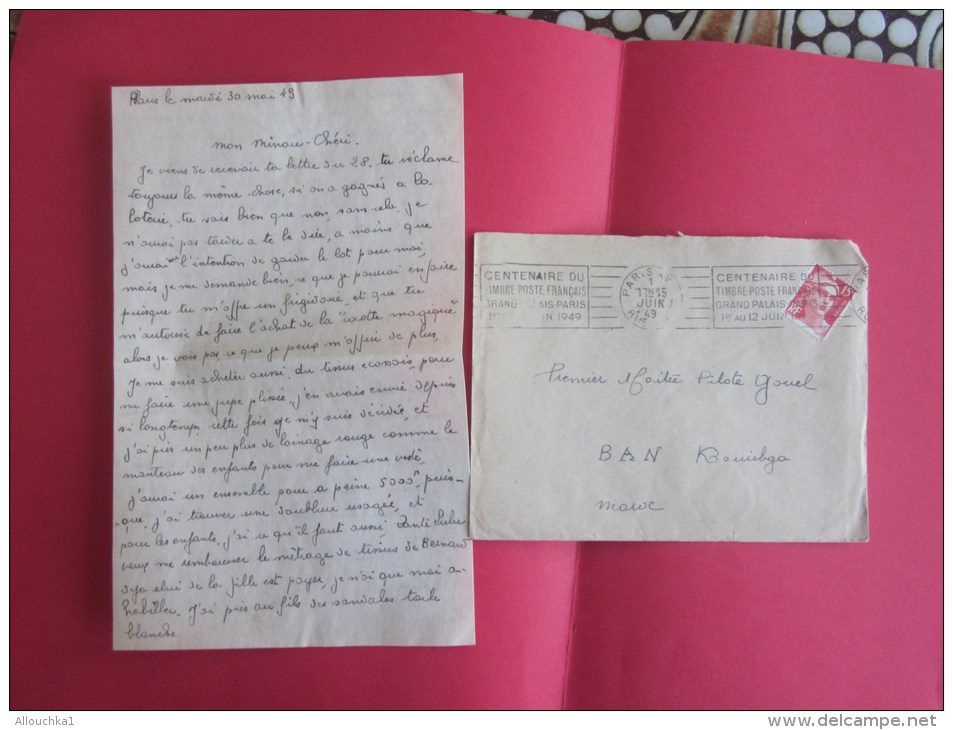 Paris le mardi 30 mai 49
mon Minou-Chéri.
Je viens de recevoir ta lettre du 28. tu réclame
toujours la même chose, si on a gagnés a la
loterie. tu sais bien que non, sans cela, je
n'aurai pas tarder a te le dire, a moins que
j'aurai l'intention de garder le lot pour moi,
mais je me demande bien, ce que je pourrai en faire
puisque tu m'offre un frigidaire, et que tu
m'autorise de faire l'achat de la
alors je vois pas ce que je peux m'offrir de plus.
Je me suis achetée aussi, du tissus ecossais, pour
me faire une jupe plissée, j'en avais envie depuis
si longtemps, cette fois je m'y suis décidée, et
j'ai pris un peu plus de lainage rouge comme le
manteau des enfants pour me faire une veste,
j'aurai un ensemble pour a peine 5000f, puis-
-que, j'ai trouver une doublure usagée, et
pour les enfants, j'ai ce qu'il faut aussi Tante Lulu
veux me rembourser le métrage de tissus de Bernard
deja celui de la fille est payer, je n'ai que moi a
habiller. J'ai pris au fils des sandales toile
blanche
CENTENAIRE DU
TIMBRE-POSTE FRANÇAIS
GRAND PALAIS-PARIS
1er AU 12 JUIN 1949
PARIS
1
17H45
JUIN
49
CENTENAIRE DU
TIMBRE-POSTE FRANÇAIS
GRAND PALAIS
1er AU 12 JUIN
15F
RF
Premier Maître Pilote Gouel
BAN Kouribga
Maroc
Allouchka1
www.delcampe.net